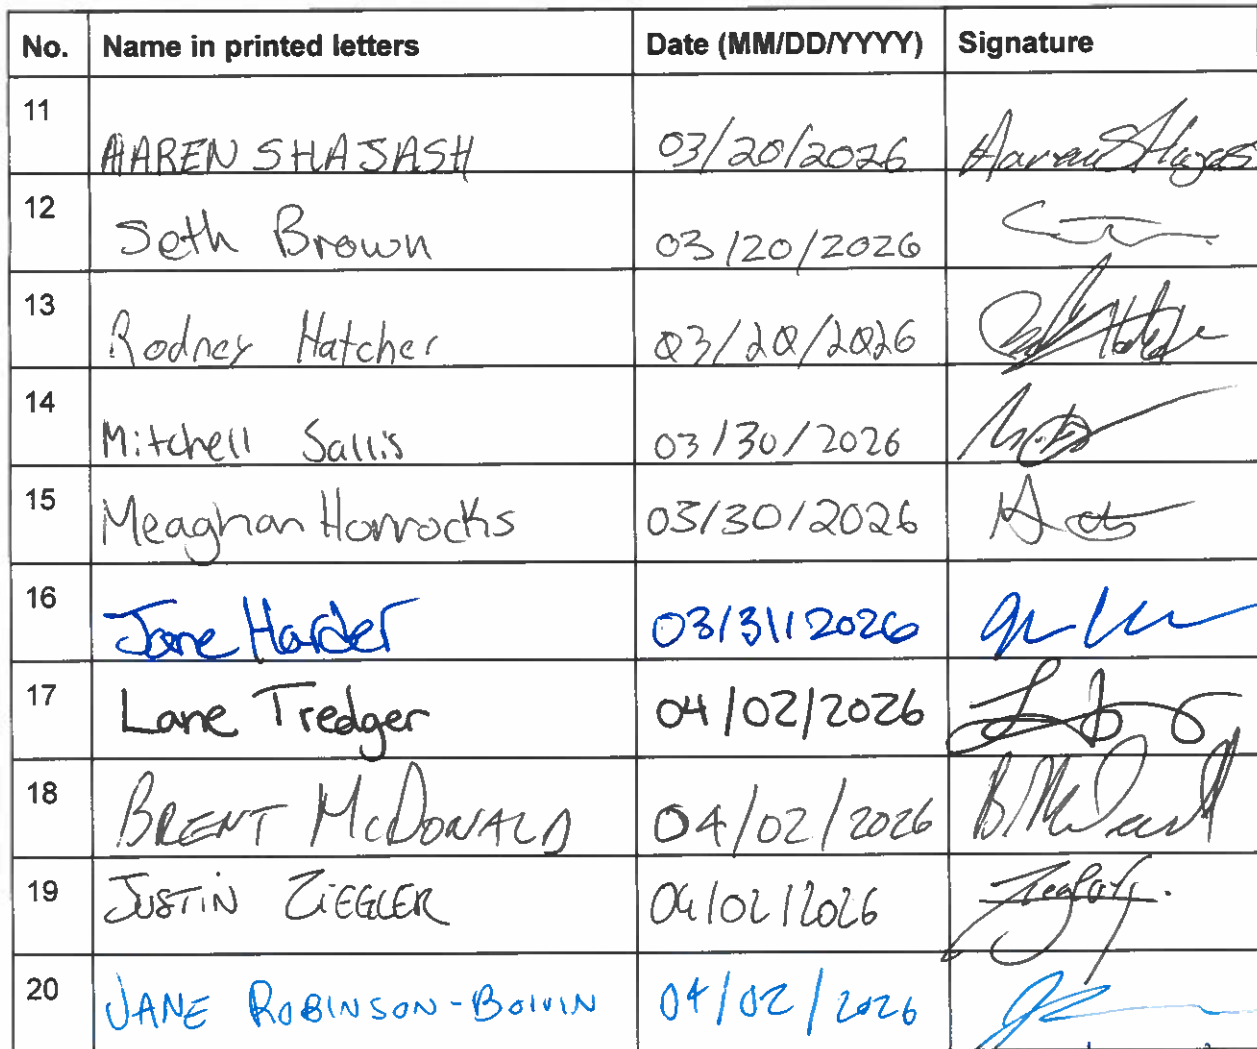 No. Name in printed letters Date (MM/DD/YYYY) Signature
11 AAREN SHAJASH 03/20/2026
12 Seth Brown 03/20/2026
13 Rodney Hatcher 03/20/2026
14 Mitchell Sallis 03/30/2026
15 Meaghan Horrocks 03/30/2026
16 Jane Harder 03/31/2026
17 Lane Tredger 04/02/2026
18 BRENT McDONALD 04/02/2026
19 JUSTIN ZIEGLER 04/02/2026
20 JANE ROBINSON-BOIVIN 04/02/2026